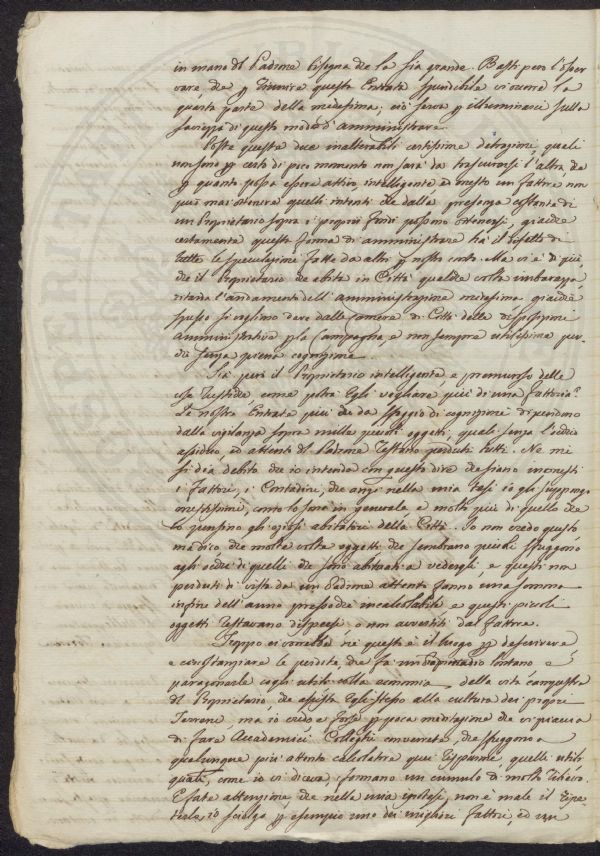 in mano del Padrone bisogna che la sia grande. Basti però l'osser
vare che p riunire questa Entrata spendibile vi occorre la
quarta parte della medesima; ciò serva p illuminarci sulla
saviezza di questo modo d'amministrare.
Poste queste due inalterabili certissime detrazioni, quali
non sono p certo di poco momento non sarà da trascurarsi l'altra, che
p quanto possa essere attivo, intelligente e onesto un Fattore non
può mai ottenere quelli intenti che dalla presenza costante di
un Proprietario sopra i proprj Fondi possono ottenersi, giacchè
certamente questa forma di amministrare hà il difetto di
tutte le speculazioni fatte da altri p nostro conto. Ma vi è di più
che il Proprietario che abita in Città qualche volta imbarazza,
ritarda l'andamento dell'amministrazione medesima giacchè
spesso si vogliono dare dalle camere di Città delle disposizioni
Amministrative p la Campagna, e non sempre utilissime per-
chè senza piena cognizione.
Sia però il Proprietario intelligente, e premuroso delle
cose rustiche, come potrà Egli vegliare più di una Fattoria?
Le nostre Entrate più che da sfoggio di cognizioni dipendono
dalla vigilanza sopra mille piccoli oggetti, quali senza l'occhio
assiduo, ed attento del Padrone restano perduti tutti. Ne mi
si dia debito che io intenda con questo dire che siano inonesti
i Fattori, i Contadini, che anzi nella mia tesi io gli suppongo
onestissimi, come lo sono in generale e molto più di quello che
lo pensino gli oziosi abitatori della Città. Io non credo questo
ma dico, che molte volte oggetti che sembrano piccoli sfuggono
agli occhi di quelli che sono abituati a vedergli, e questi non
perduti di vista da un Padrone attento fanno una somma
infine dell'anno pressochè incalcolabile e questi piccoli
oggetti restavano dispersi o non avvertiti dal Fattore.
Troppo ci vorrebbe nè questo è il luogo p descrivere
e circostanziare le perdite che fà un Proprietario lontano e
paragonarle cogli utili colla economia della vita campestre
del Proprietario, che assista Egli stesso alla cultura dei proprj
Terreni, ma io credo e forse p poca meditazione che vi piaccia
di fare Accademici Colleghi converrete, che sfuggono a
qualunque più attento calcolatore quei risparmi, quelli utili
quali, come io vi diceva, formano un cumulo di molto rilievo.
Fate attenzione, che nella mia ipotesi, non è male il ripe
terlo, io scielgo p esempio uno dei migliori Fattori, ed un